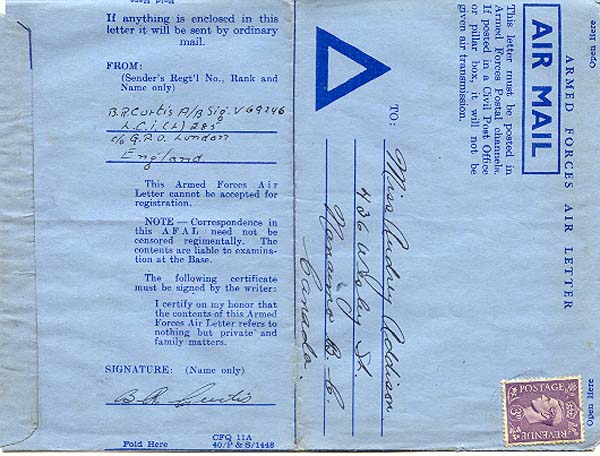 Open Here
ARMED FORCES AIR LETTER
AIR MAIL
This letter must be posted in
Armed Forces Postal channels.
If posted in a Civil Post Office
or pillar box, it will not be
given air transmission.
TO:
Miss Audrey Addison
436 Wesley St.
Nanaimo B.C
Canada.
POSTAGE
REVENUE
3D
Open Here
Fold Here
If anything is enclosed in this
letter it will be sent by ordinary
mail.
FROM:
(Sender's Regt'l No., Rank and
Name only)
B.R. Curtis A/B Sig. V69246
L.C.I.(L) 285
c/o G.P.O. London
England
This Armed Forces Air
Letter cannot be accepted for
registration.
NOTE — Correspondence in
this AFAL need not be
censored regimentally. The
contents are liable to examina-
tion at the Base.
The following certificate
must be signed by the writer:
I certify on my honor that
the contents of this Armed
Forces Air Letter refers to
nothing but private and
family matters.
SIGNATURE: (Name only)
B R Curtis
Fold Here
CFQ 11A
40/P & S/1448